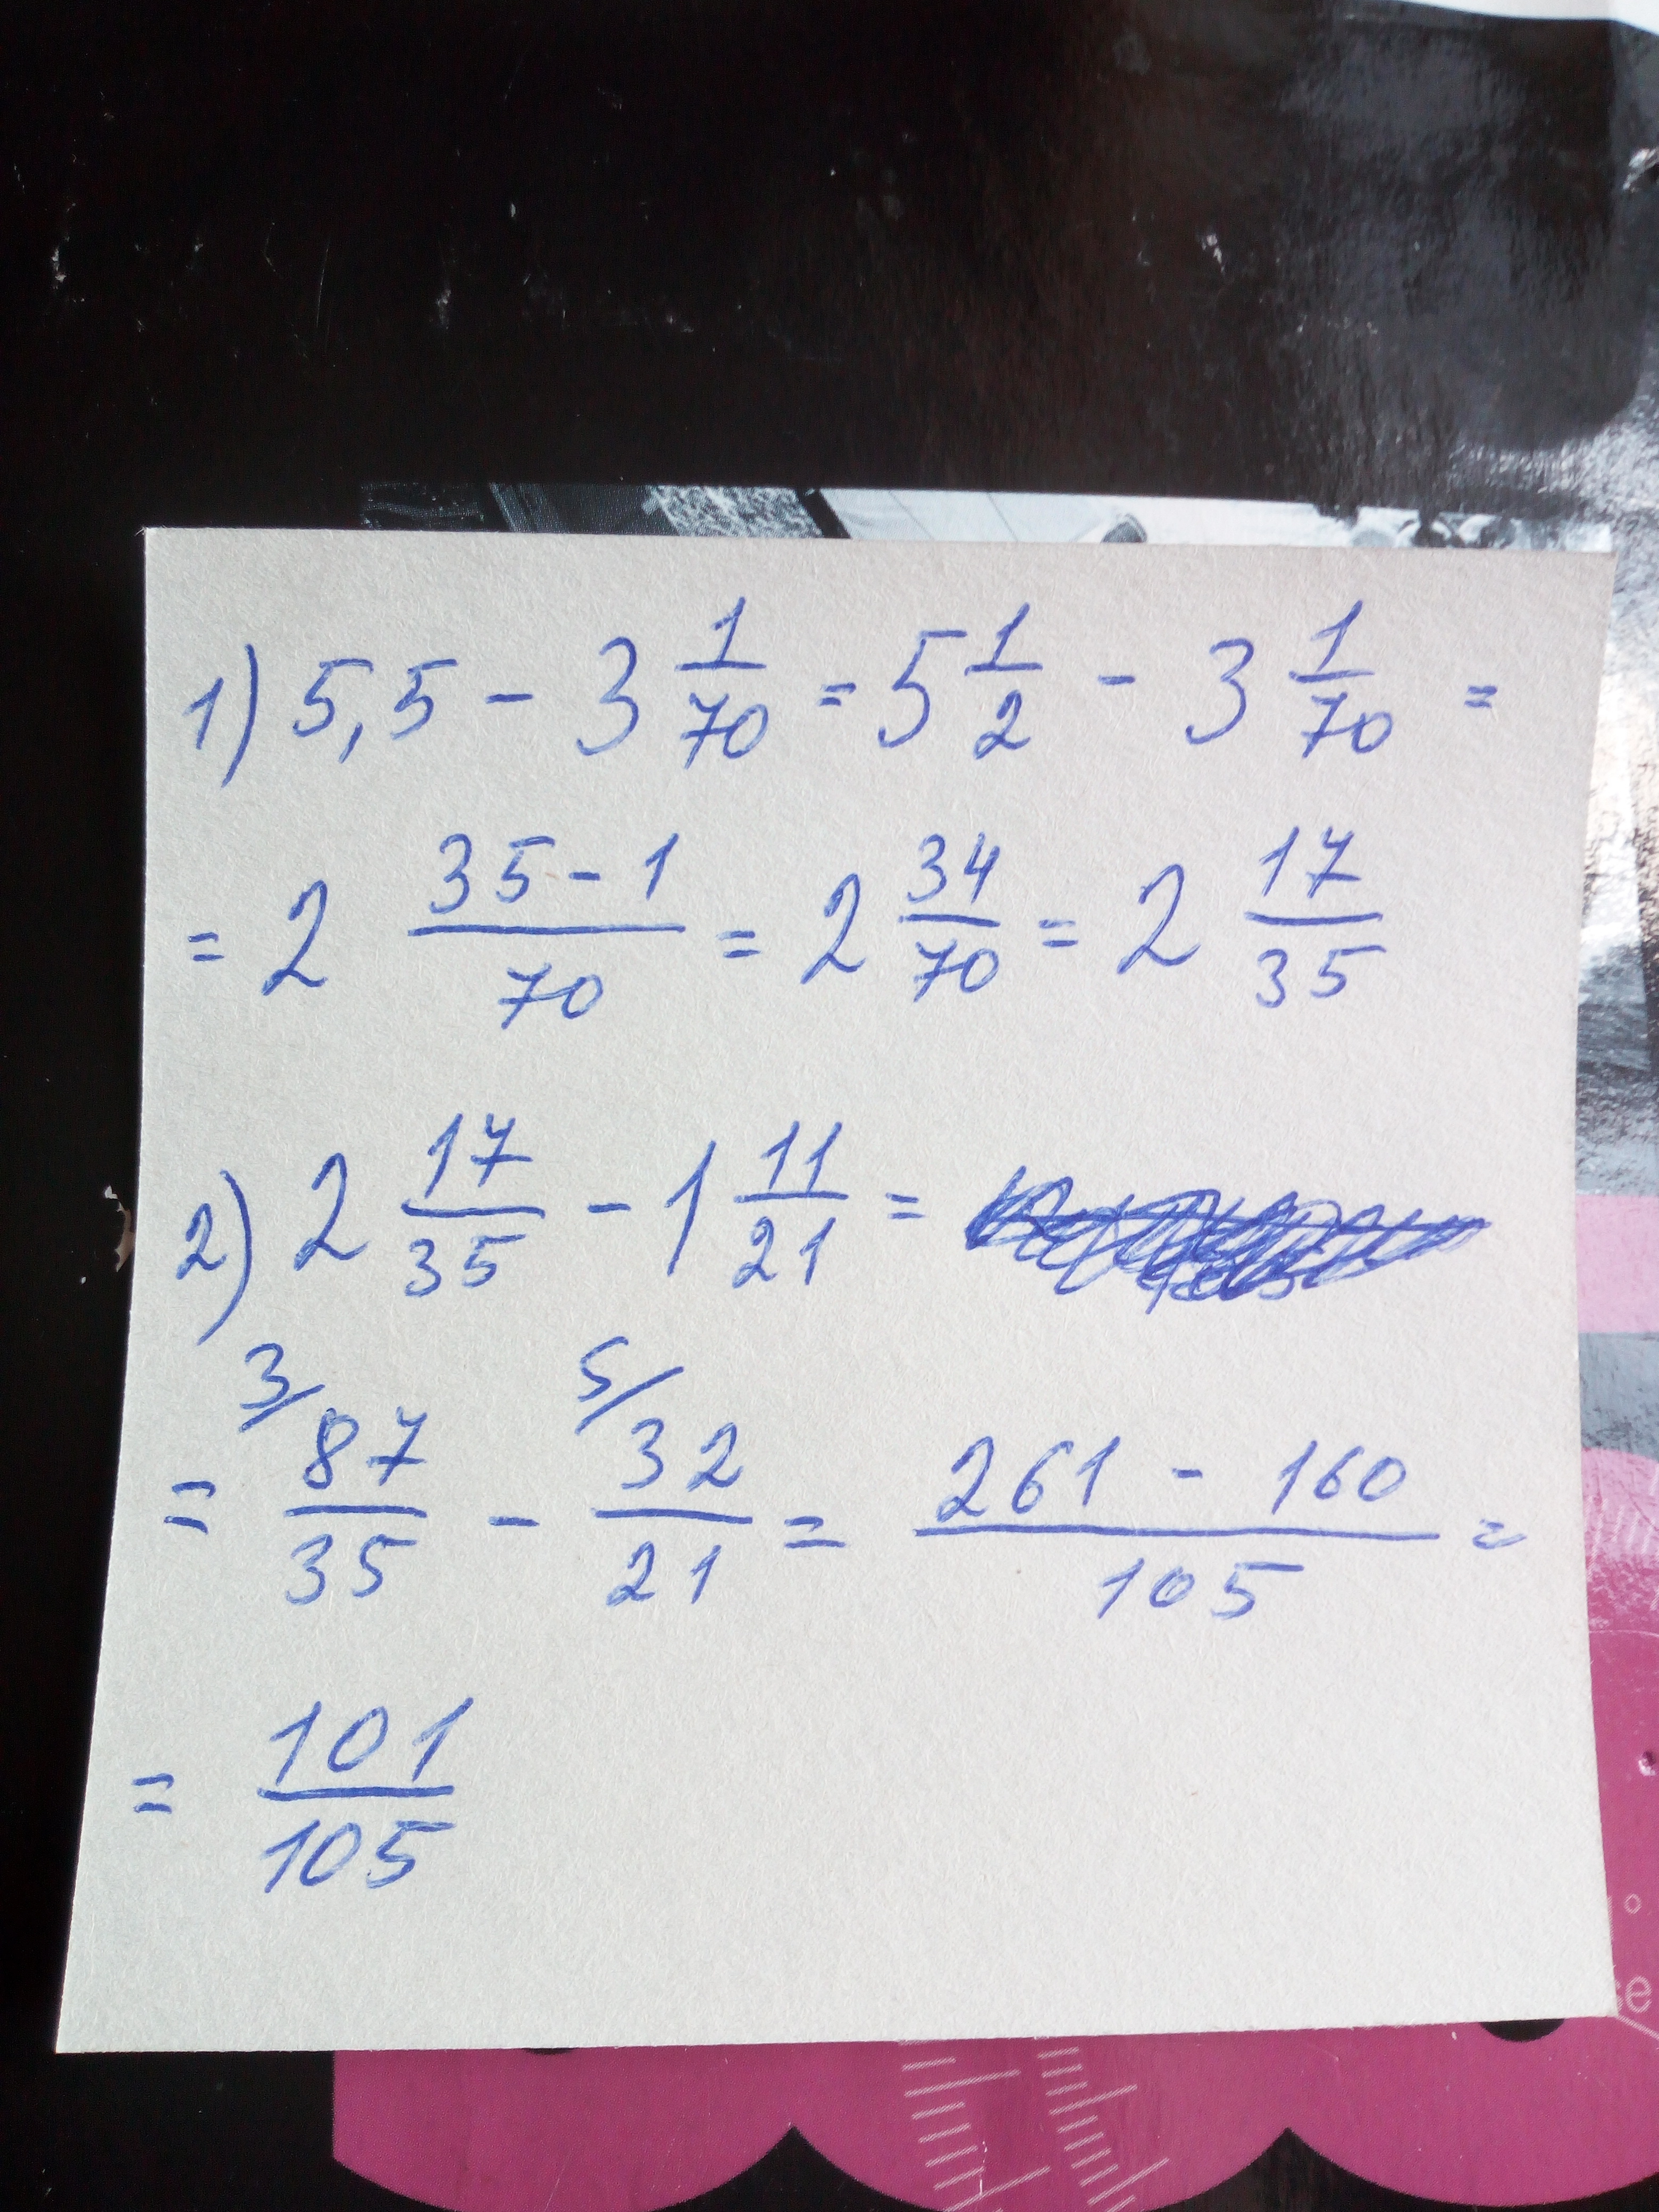 1) 5,5 - 3 1/70 = 5 1/2 - 3 1/70 =
= 2 (35 - 1)/70 = 2 34/70 = 2 17/35
2) 2 17/35 - 1 11/21 =
= 3/ 87/35 - 5/ 32/21 = (261 - 160)/105 =
= 101/105